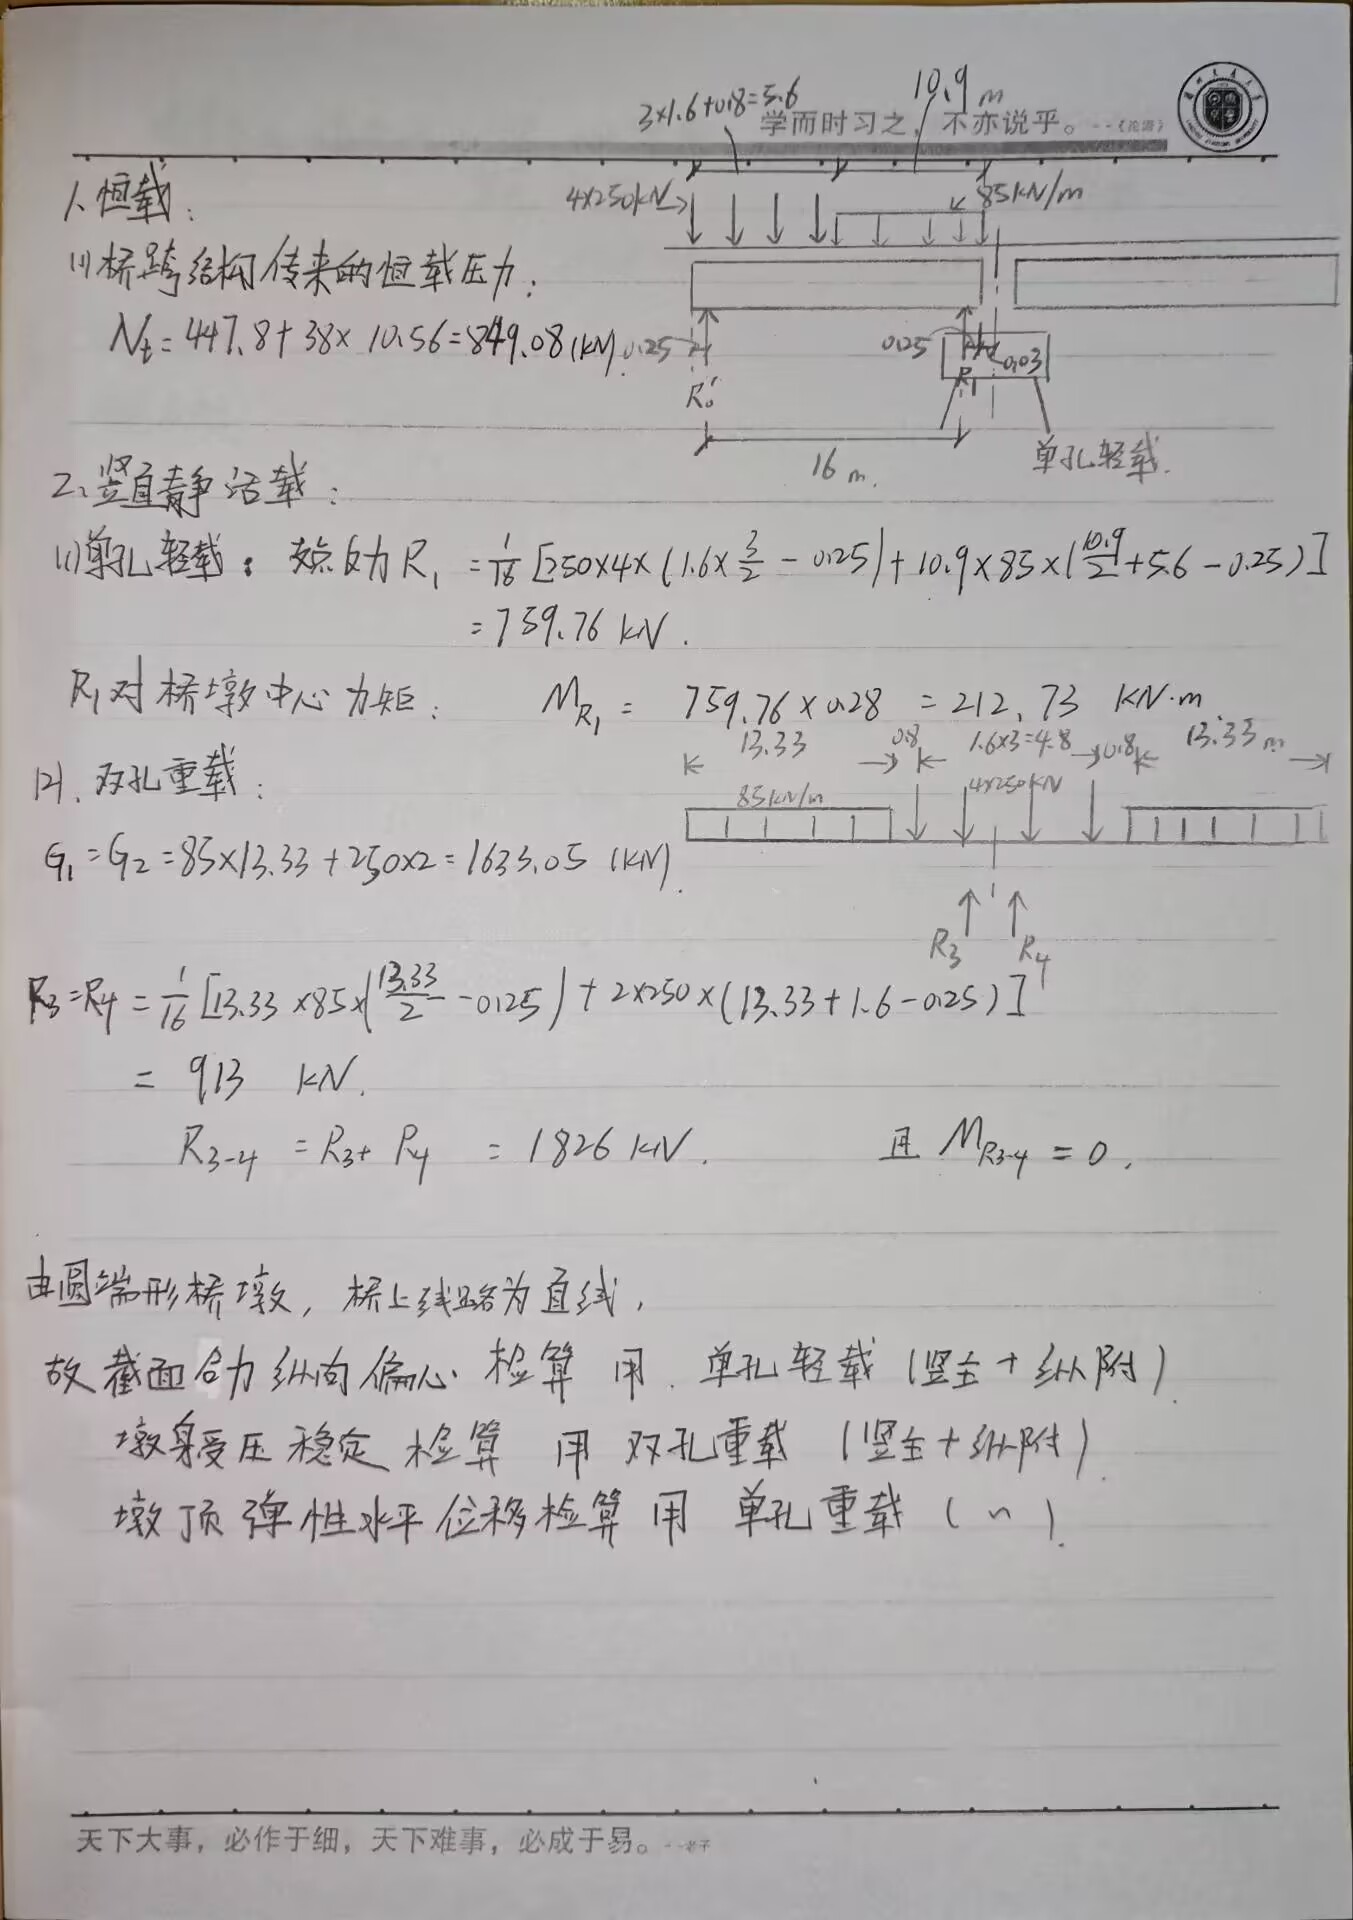 3×1.6+0.8=5.6
10.9 m
学而时习之，不亦说乎。--《论语》
4×250kN
85kN/m
1、恒载：
(1)桥跨结构传来的恒载压力：
Nt=447.8+38×10.56=849.08(kN).
0.25
R0'
0.25
R1
0.03
16 m.
单孔轻载.
2、竖直静活载：
(1)单孔轻载：支点反力R1 =1/16[250×4×(1.6×3/2-0.25)+10.9×85×(10.9/2+5.6-0.25)]
=759.76 kN.
R1对桥墩中心力矩： MR1= 759.76×0.28 =212.73 KN·m
13.33 0.8 1.6×3=4.8 0.8 13.33 m
(2). 双孔重载：
85kN/m
4×250KN
G1=G2=85×13.33+250×2=1633.05 (KN).
R3 R4
R3=R4=1/16[13.33×85×(13.33/2-0.25)+2×250×(13.33+1.6-0.25)]
= 913 kN.
R3-4 =R3+R4 =1826 kN. 且MR3-4=0.
由圆端形桥墩，桥上线路为直线，
故截面合力纵向偏心检算用.单孔轻载(竖主+纵附).
墩身受压稳定检算用双孔重载(竖主+纵附).
墩顶弹性水平位移检算用单孔重载(〃).
天下大事，必作于细，天下难事，必成于易。--老子